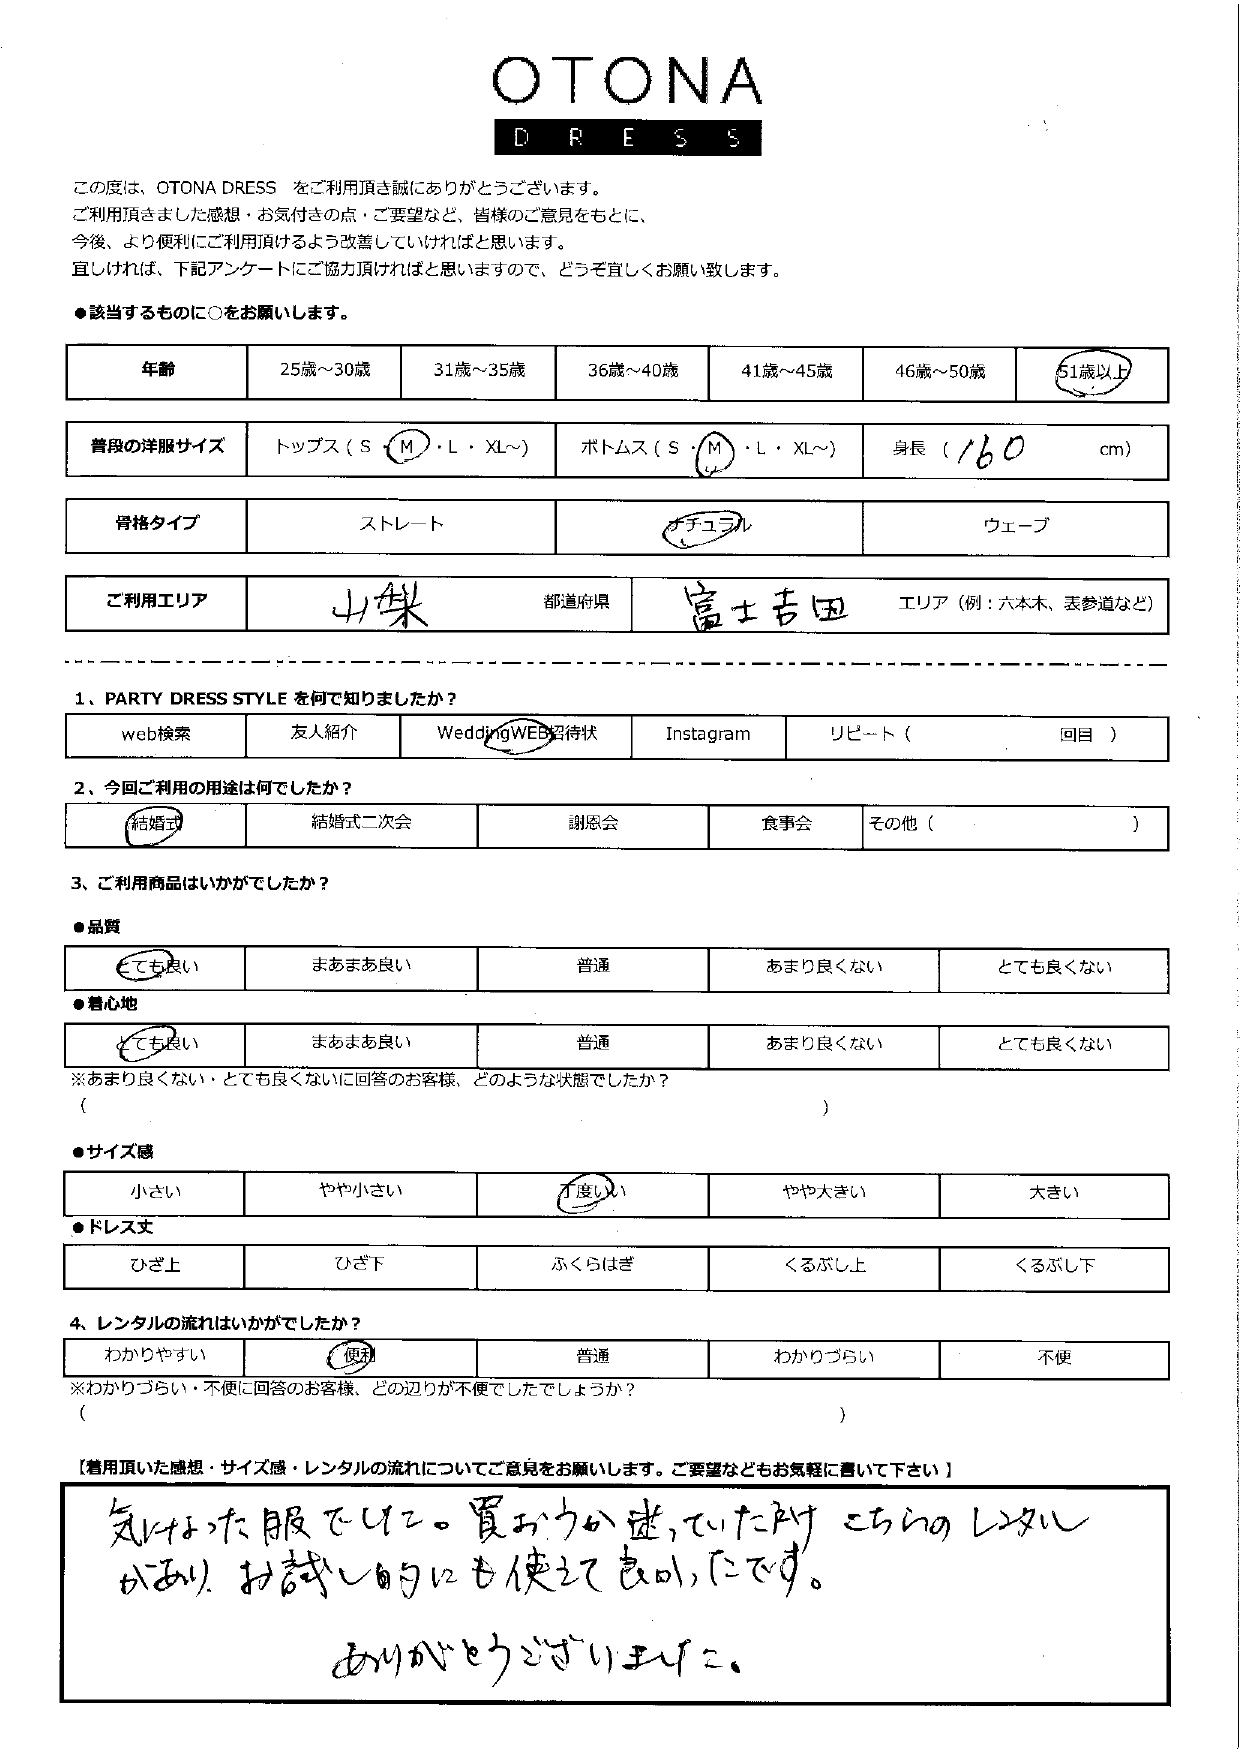 OTONA
DRESS
この度は、OTONA DRESS をご利用頂き誠にありがとうございます。
ご利用頂きました感想・お気付きの点・ご要望など、皆様のご意見をもとに、
今後、より便利にご利用頂けるよう改善していければと思います。
宜しければ、下記アンケートにご協力頂ければと思いますので、どうぞ宜しくお願い致します。
●該当するものに○をお願いします。
年齢 25歳～30歳 31歳～35歳 36歳～40歳 41歳～45歳 46歳～50歳 51歳以上
普段の洋服サイズ トップス ( S ・ M ・ L ・ XL～) ボトムス ( S ・ M ・ L ・ XL～) 身長 ( 160 cm)
骨格タイプ ストレート ナチュラル ウェーブ
ご利用エリア 山梨 都道府県 富士吉田 エリア（例：六本木、表参道など）
1、PARTY DRESS STYLE を何で知りましたか？
web検索 友人紹介 WeddingWEB招待状 Instagram リピート ( 回目 )
2、今回ご利用の用途は何でしたか？
結婚式 結婚式二次会 謝恩会 食事会 その他 ( )
3、ご利用商品はいかがでしたか？
●品質
とても良い まあまあ良い 普通 あまり良くない とても良くない
●着心地
とても良い まあまあ良い 普通 あまり良くない とても良くない
※あまり良くない・とても良くないに回答のお客様、どのような状態でしたか？
( )
●サイズ感
小さい やや小さい 丁度いい やや大きい 大きい
●ドレス丈
ひざ上 ひざ下 ふくらはぎ くるぶし上 くるぶし下
4、レンタルの流れはいかがでしたか？
わかりやすい 便利 普通 わかりづらい 不便
※わかりづらい・不便に回答のお客様、どの辺りが不便でしたでしょうか？
( )
【着用頂いた感想・サイズ感・レンタルの流れについてご意見をお願いします。ご要望などもお気軽に書いて下さい 】
気になった服でした。買おうか迷っていた時 こちらの レンタル
があり、お試し的にも使えて良かったです。
ありがとうございました。